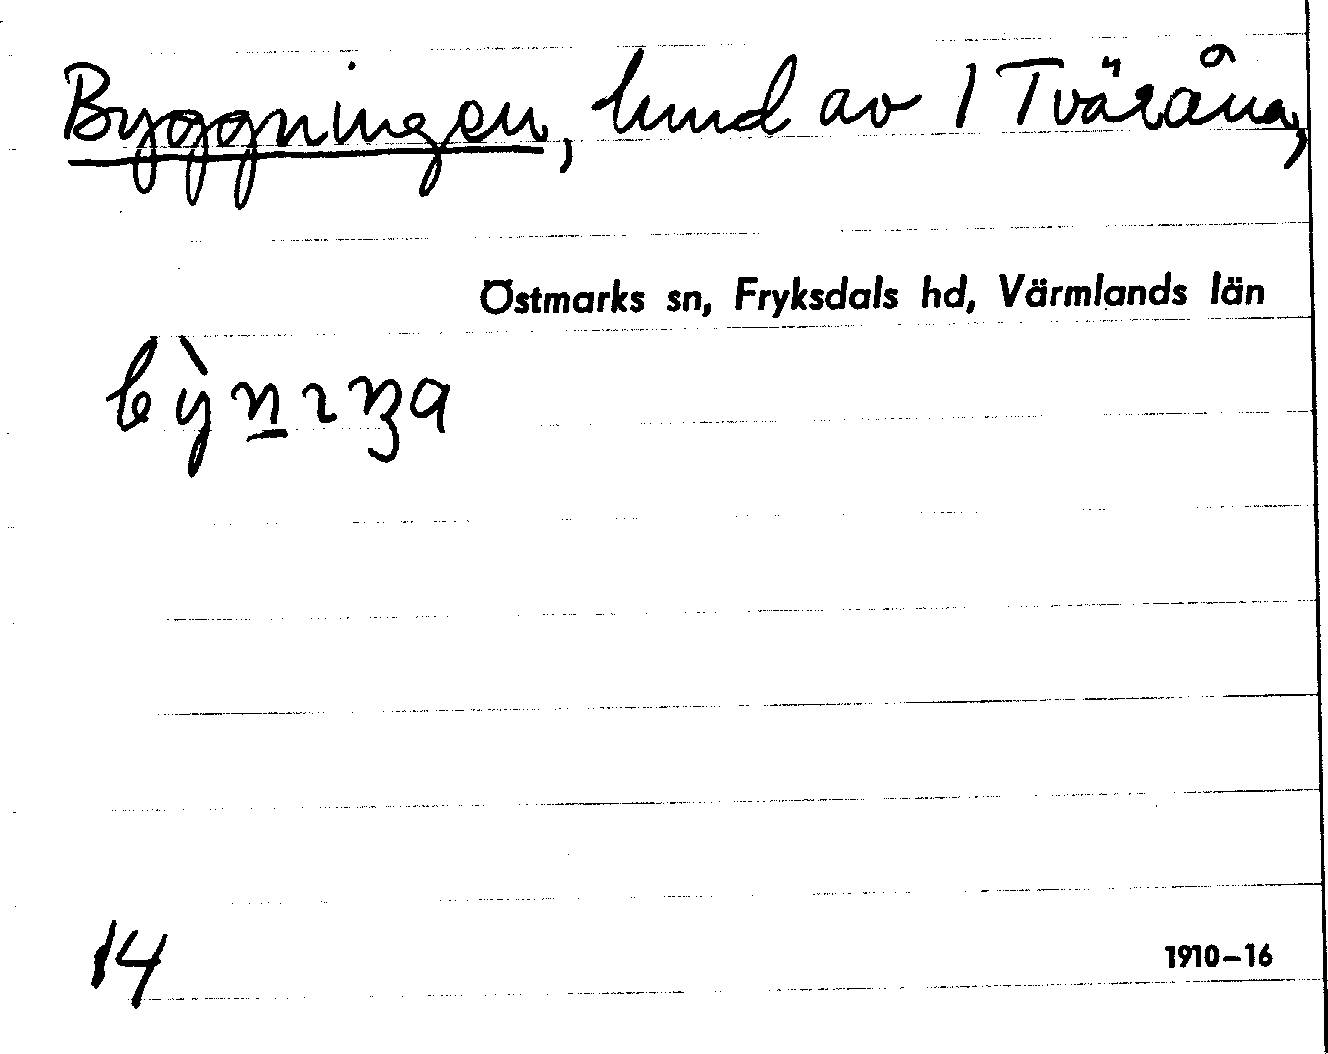 Byggningen, lund av 1 Tväråna,
Östmarks sn, Fryksdals hd, Värmlands län
14
1910–16